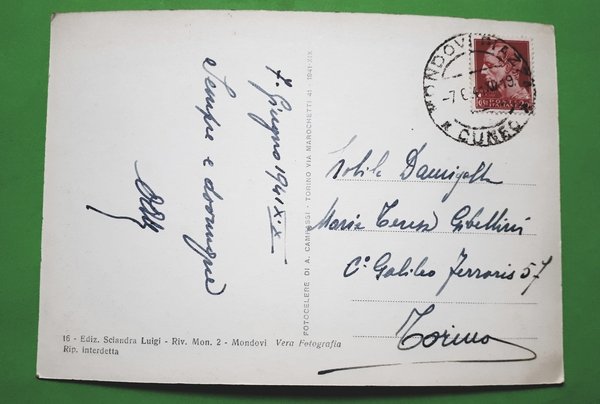 MONDOVI PIAZZA
-7.6.41.19
* CUNEO *
POSTE ITALIANE
7. Giugno 1941 XIX
Sempre e dovunque
Nobile Damigella
Maria Teresa Gibellini
C° Galileo Ferraris 57
Torino
FOTOCELERE DI A. CAMPASSI - TORINO VIA MAROCHETTI 41 - 1941-XIX
16 - Ediz. Sciandra Luigi - Riv. Mon. 2 - Mondovì Vera Fotografia
Rip. interdetta